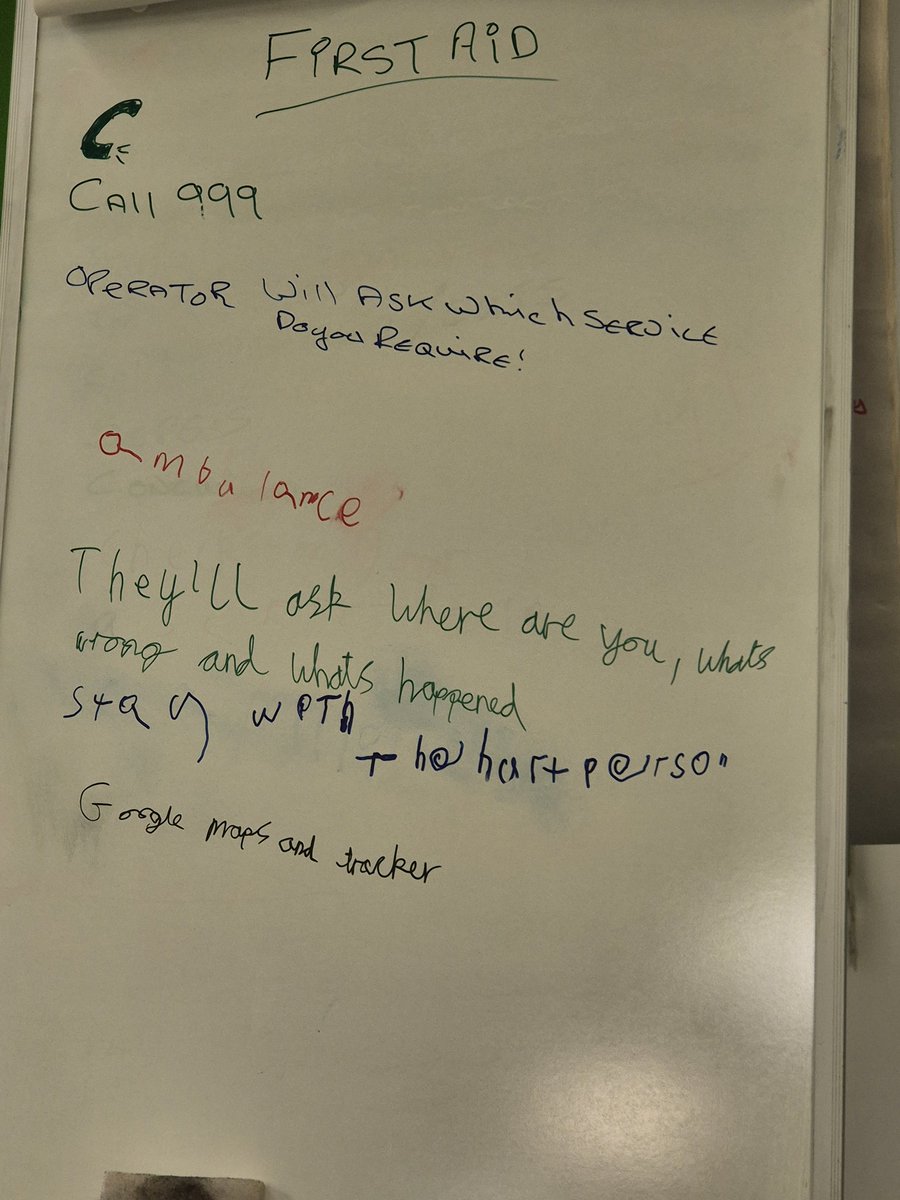 FiRST AiD
CAll 999
OPERATOR Will ASK which SERVICE
Do you REQUIRE!
ambulance
They'll ask where are you, whats
wrong and whats happened
stay with
the hart person
Google maps and tracker